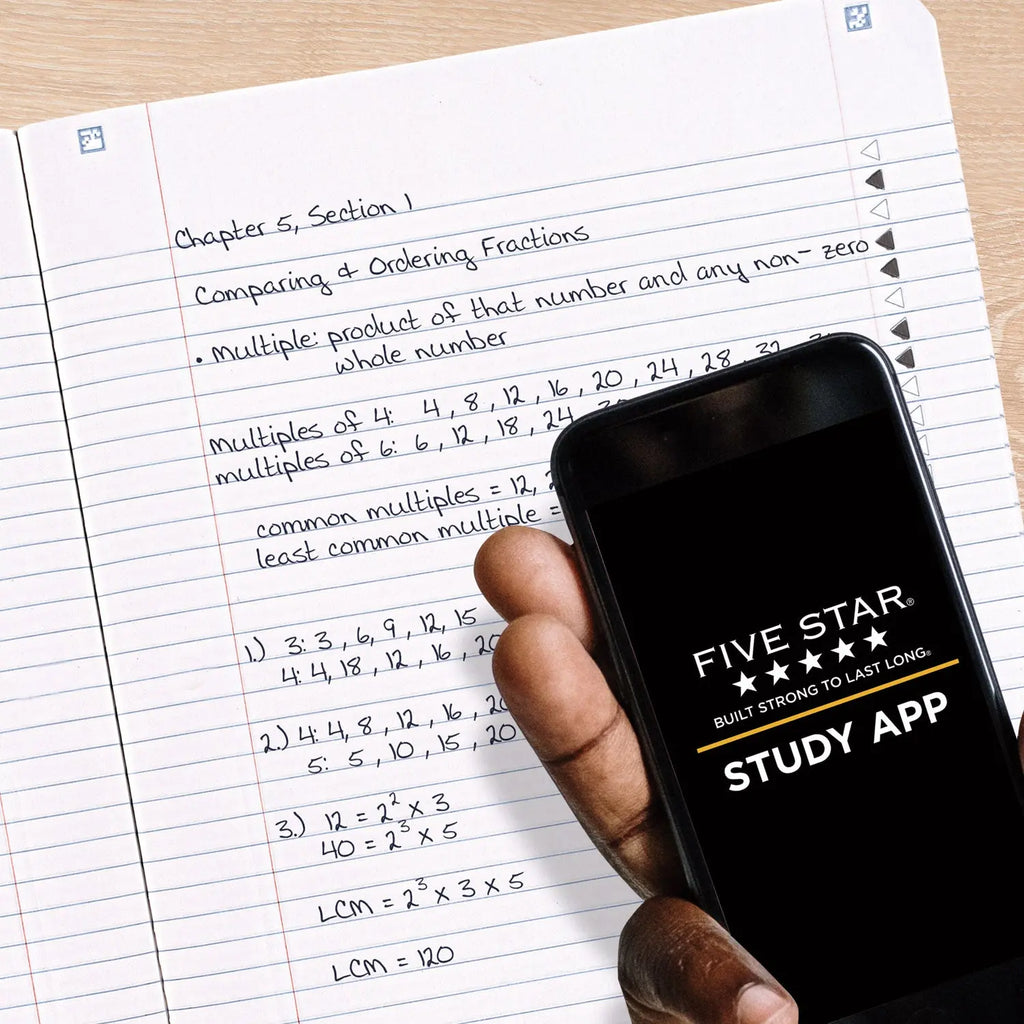 Chapter 5, Section 1
Comparing & Ordering Fractions
• Multiple: product of that number and any non-zero
whole number
multiples of 4: 4, 8, 12, 16, 20, 24, 28, 32,
multiples of 6: 6, 12, 18, 24,
common multiples = 12,
least common multiple =
1.) 3: 3, 6, 9, 12, 15
4: 4, 18, 12, 16, 20
2.) 4: 4, 8, 12, 16, 20
5: 5, 10, 15, 20
3.) 12 = 2² x 3
40 = 2³ x 5
LCM = 2³ x 3 x 5
LCM = 120
FIVE STAR®
BUILT STRONG TO LAST LONG®
STUDY APP